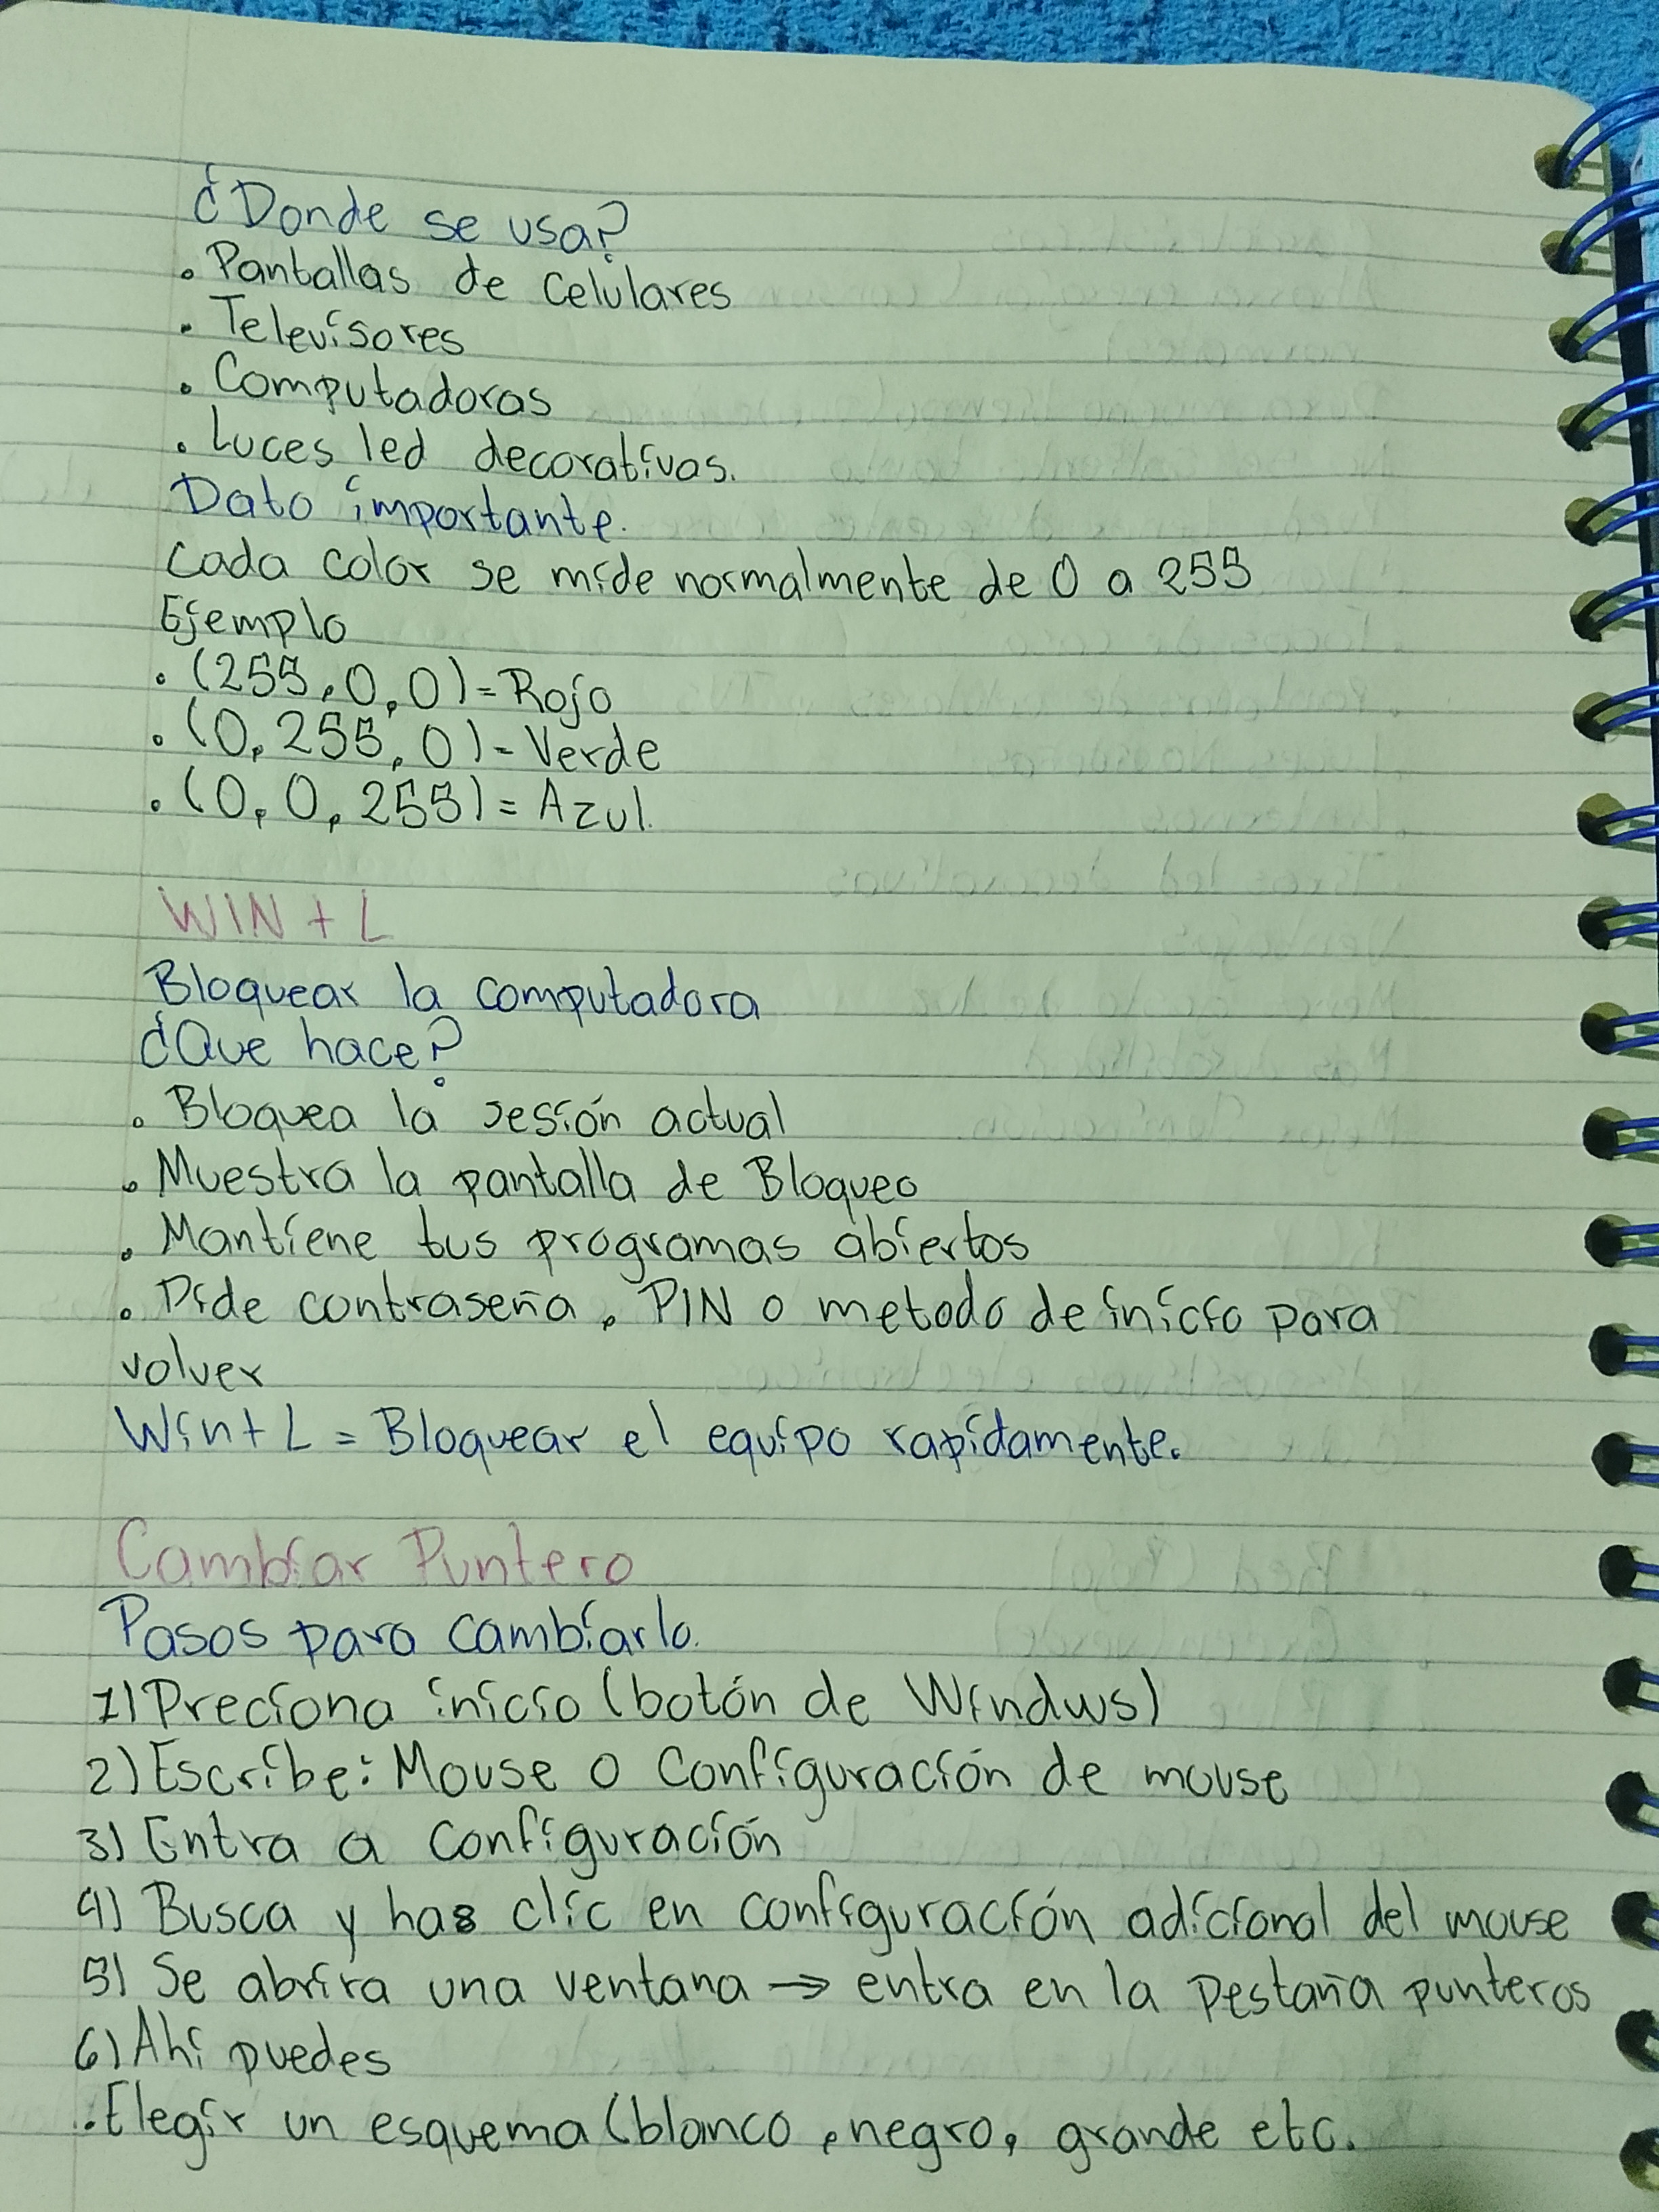 ¿Donde se usa?
• Pantallas de Celulares
• Televisores
• Computadoras
• Luces led decorativas.
Dato importante.
Cada color se mide normalmente de 0 a 255
Ejemplo
• (255, 0, 0) = Rojo
• (0, 255, 0) = Verde
• (0, 0, 255) = Azul.
WIN + L
Bloquear la computadora
¿Que hace?
• Bloquea la sesión actual
• Muestra la pantalla de Bloqueo
• Mantiene tus programas abiertos
• Pide contraseña, PIN o metodo de inicio para
volver
Win + L = Bloquear el equipo rapidamente.
Cambiar Puntero
Pasos para cambiarlo.
1) Preciona inicio (botón de Windws)
2) Escribe: Mouse o Configuración de mouse
3) Entra a configuración
4) Busca y has clic en configuración adicional del mouse
5) Se abrira una ventana → entra en la Pestaña punteros
6) Ahi puedes
• Elegir un esquema (blanco, negro, grande etc.